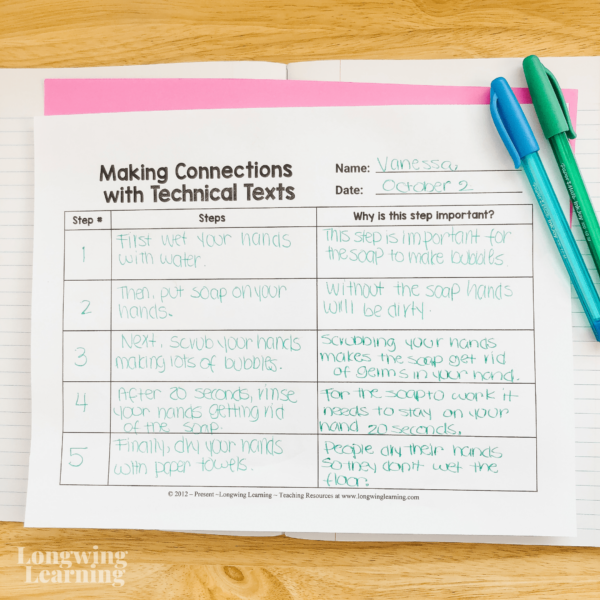 Making Connections
with Technical Texts
Name: Vanessa
Date: October 2
Step #
Steps
Why is this step important?
1
First wet your hands
with water.
This step is important for
the soap to make bubbles
2
Then, put soap on your
hands.
Without the soap hands
will be dirty.
3
Next, scrub your hands
making lots of bubbles.
Scrubbing your hands
makes the soap get rid
of germs in your hand.
4
After 20 seconds, rinse
your hands getting rid
of the soap.
For the soap to work it
needs to stay on your
hand 20 seconds.
5
Finally, dry your hands
with paper towels.
People dry their hands
so they don't wet the
floor.
© 2012 ~ Present ~Longwing Learning ~ Teaching Resources at www.longwinglearning.com
Longwing
Learning